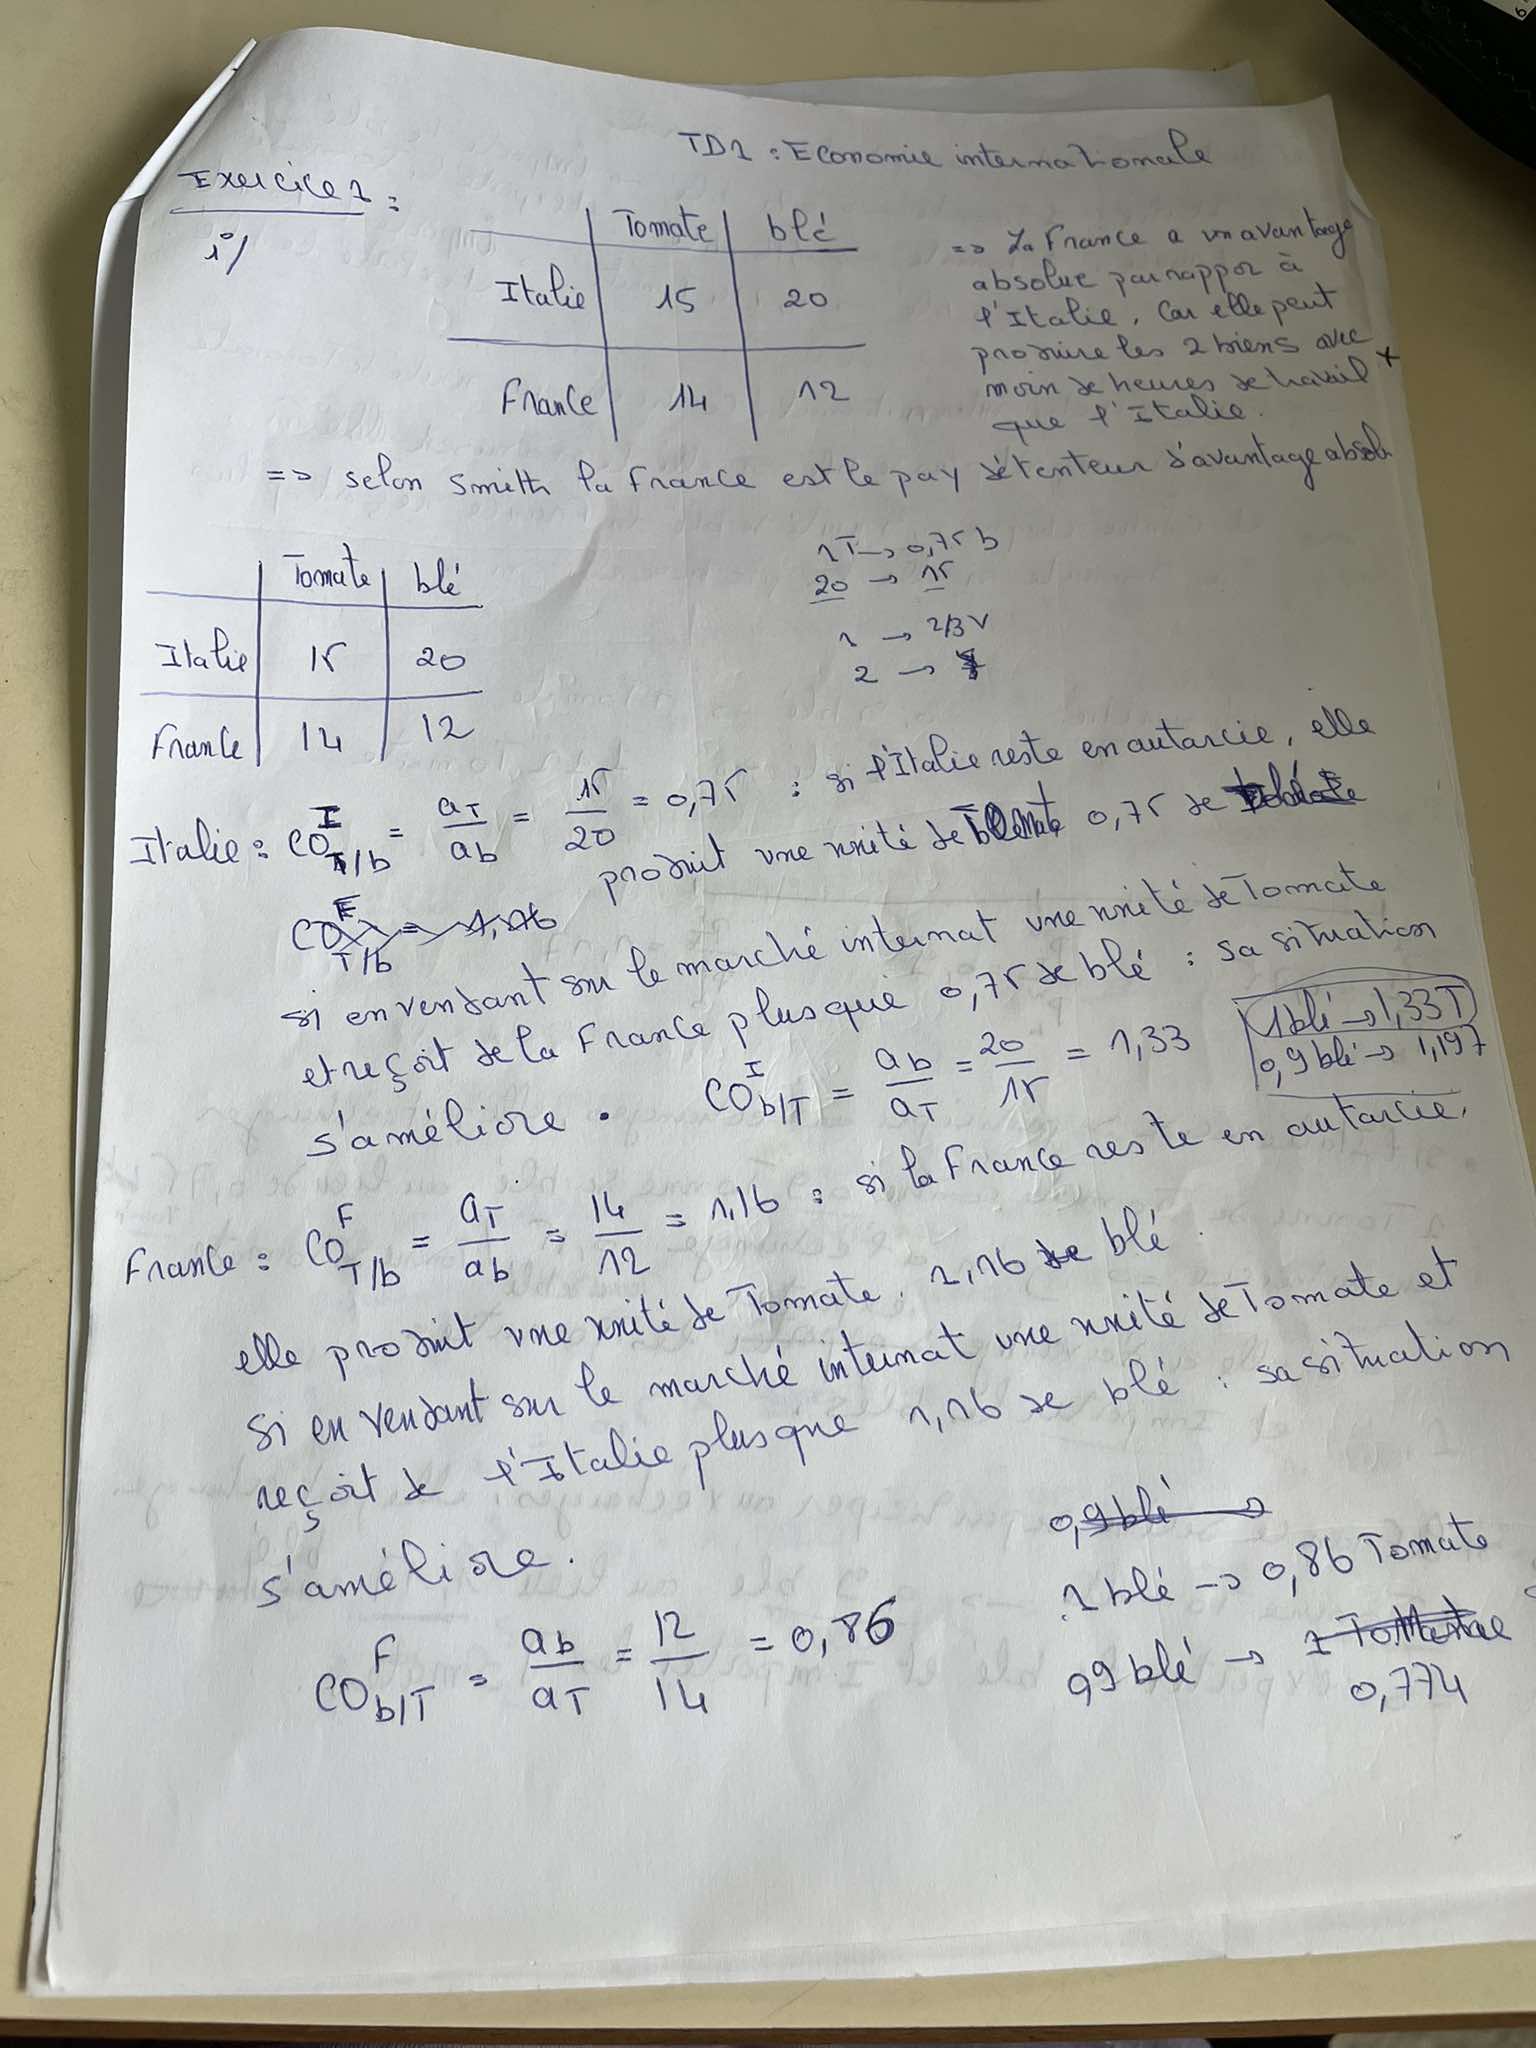 TD1 : Economie internationale
Exercice 1 :
1°/
Tomate blé
Italie 15 20
France 14 12
=> La France a un avantage
absolue par rappor à
l'Italie, Car elle peut
produire les 2 biens avec
moin de heures de travail
que l'Italie.
=> selon Smith la France est le pay détenteur d'avantage absolu
Tomate blé
Italie 15 20
France 14 12
1T -> 0,75 b
20 -> 15
1 -> 2/3 V
2 ->
Italie : CO^I_T/b = aT/ab = 15/20 = 0,75 : si l'Italie reste en autarcie, elle
produit une unité de Tomate 0,75 de blé
CO_T/b = 1,16
si en vendant sur le marché internat une unité de Tomate
et reçoit de la France plus que 0,75 de blé : sa situation
s'améliore . CO^I_b/T = ab/aT = 20/15 = 1,33
1 blé -> 1,33 T
0,9 blé -> 1,197
France : CO^F_T/b = aT/ab = 14/12 = 1,16 : si la France reste en autarcie,
elle produit une unité de Tomate . 1,16 de blé .
si en vendant sur le marché internat une unité de Tomate et
reçoit de l'Italie plus que 1,16 de blé : sa situation
s'améliore .
CO^F_b/T = ab/aT = 12/14 = 0,86
0,9 blé ->
1 blé -> 0,86 Tomate
0,9 blé -> 1 Tomate
0,774